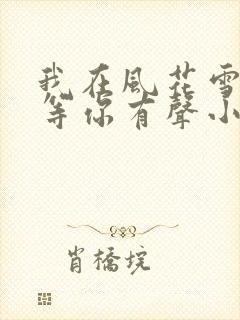 我在風花雪
等你有聲小
肖橋垸